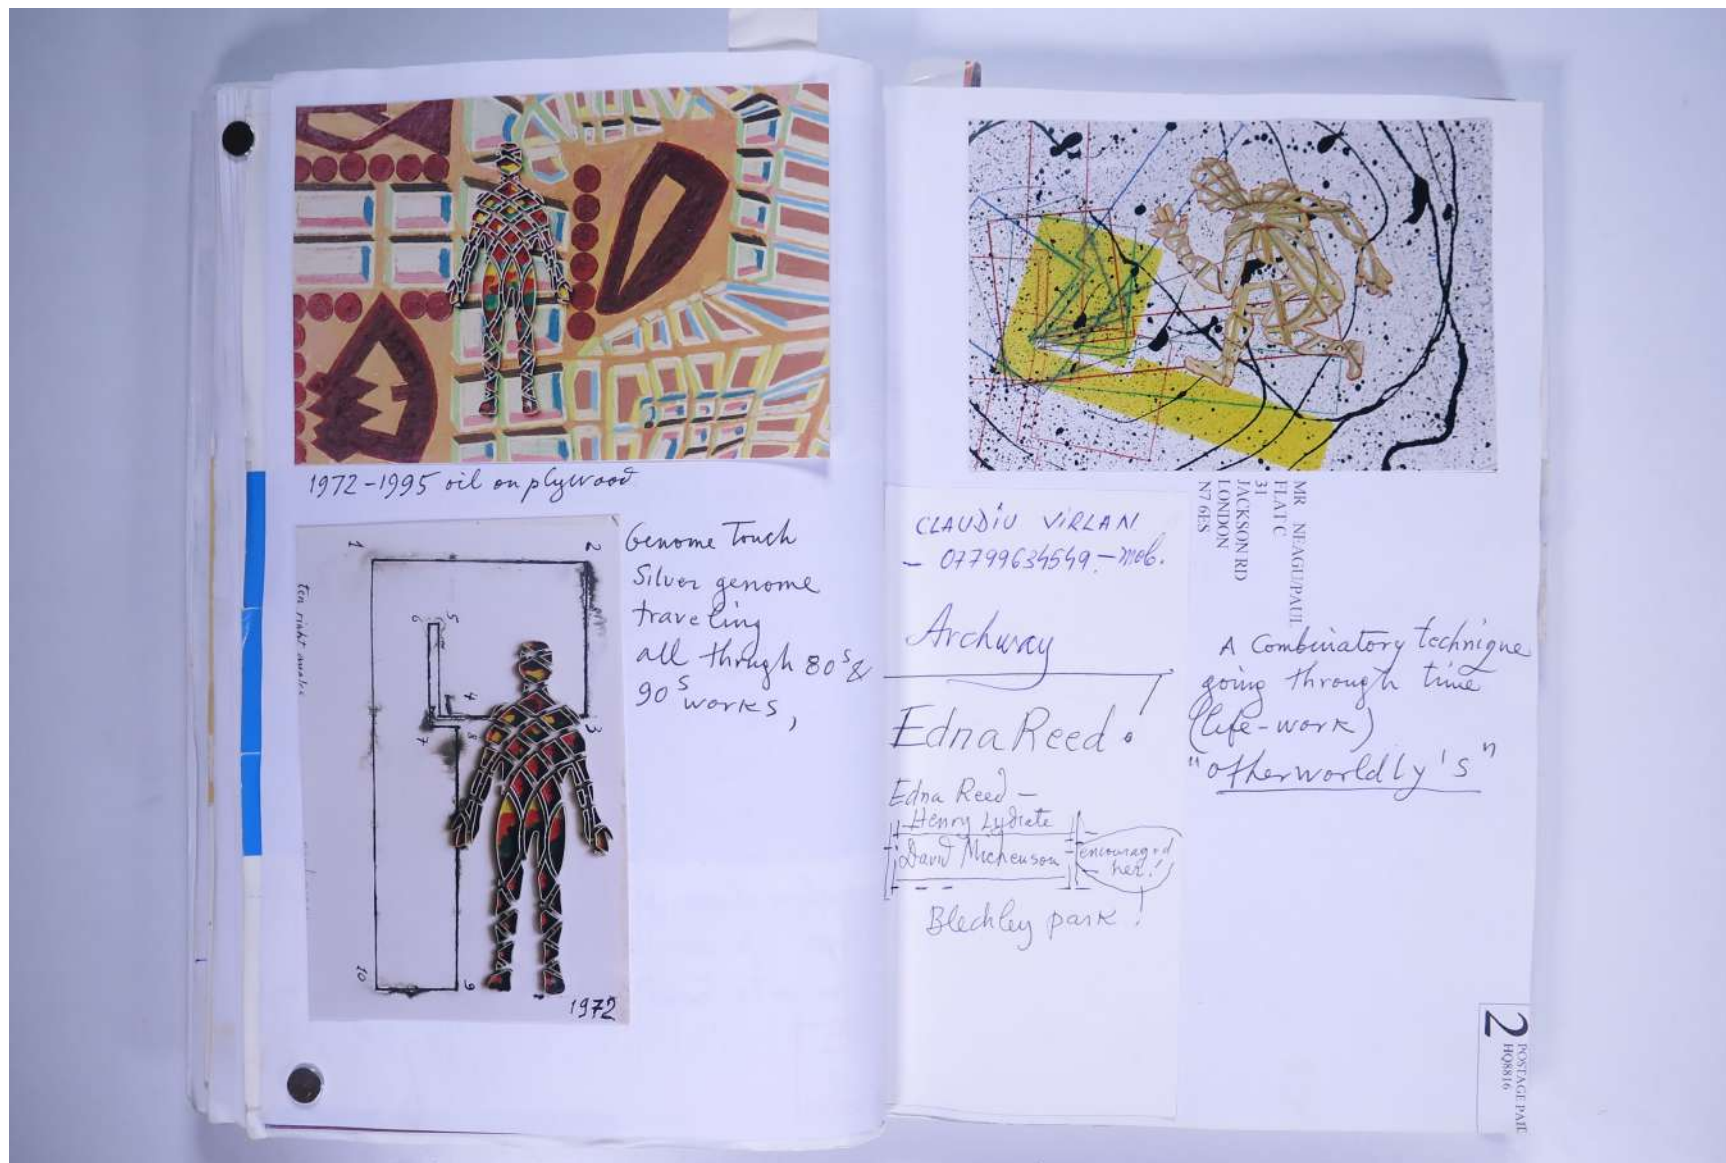 1972-1995 oil on plywood
1
2
3
4
5
6
7
8
9
10
ten right angles
1972
Genome Touch
Silver genome
traveling
all through 80s &
90s works,
CLAUDIU VIRLAN
- 07799634549 - mob.
Archway
Edna Reed!
Edna Reed -
Henry Lydiate
David
encouraged
her!
Blechley park!
MR NEAGU/PAUL
FLAT C
31
JACKSON RD
LONDON
N7 6ES
A Combinatory technique
going through time
(life-work)
"otherworldly's"
2
POSTAGE PAID
HQ8816